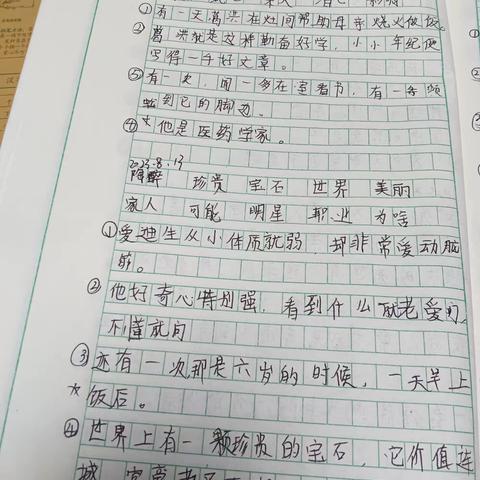 ①有一天葛洪在灶间帮助母亲烧火做饭。
②葛洪就是这样勤奋好学,小小年纪便
写得一手好文章。
③有一次,闻一多在室看书,有一条蜈
蚣到它的脚边。
④他是医药学家。
2023.8.19
陶醉 珍贵 宝石 世界 美丽
家人 可能 明星 职业 为啥
①爱迪生从小体质就弱,却非常爱动脑
筋。
②他好奇心特别强,看到什么就老爱问,
不懂就问
③还有一次那是六岁的时候,一天早上
饭后。
④世界上有一颗珍贵的宝石,它价值连